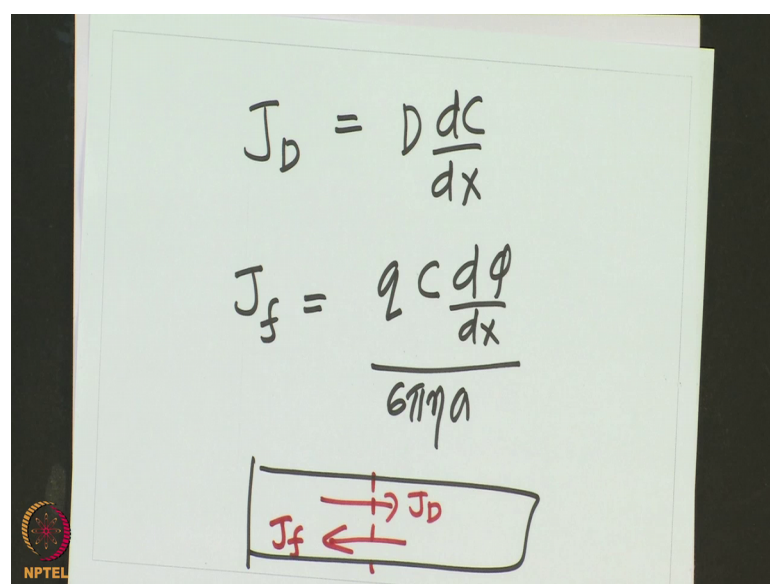 J_D = D dC/dx
J_f = q C dφ/dx / 6πηa
J_D
J_f
NPTEL